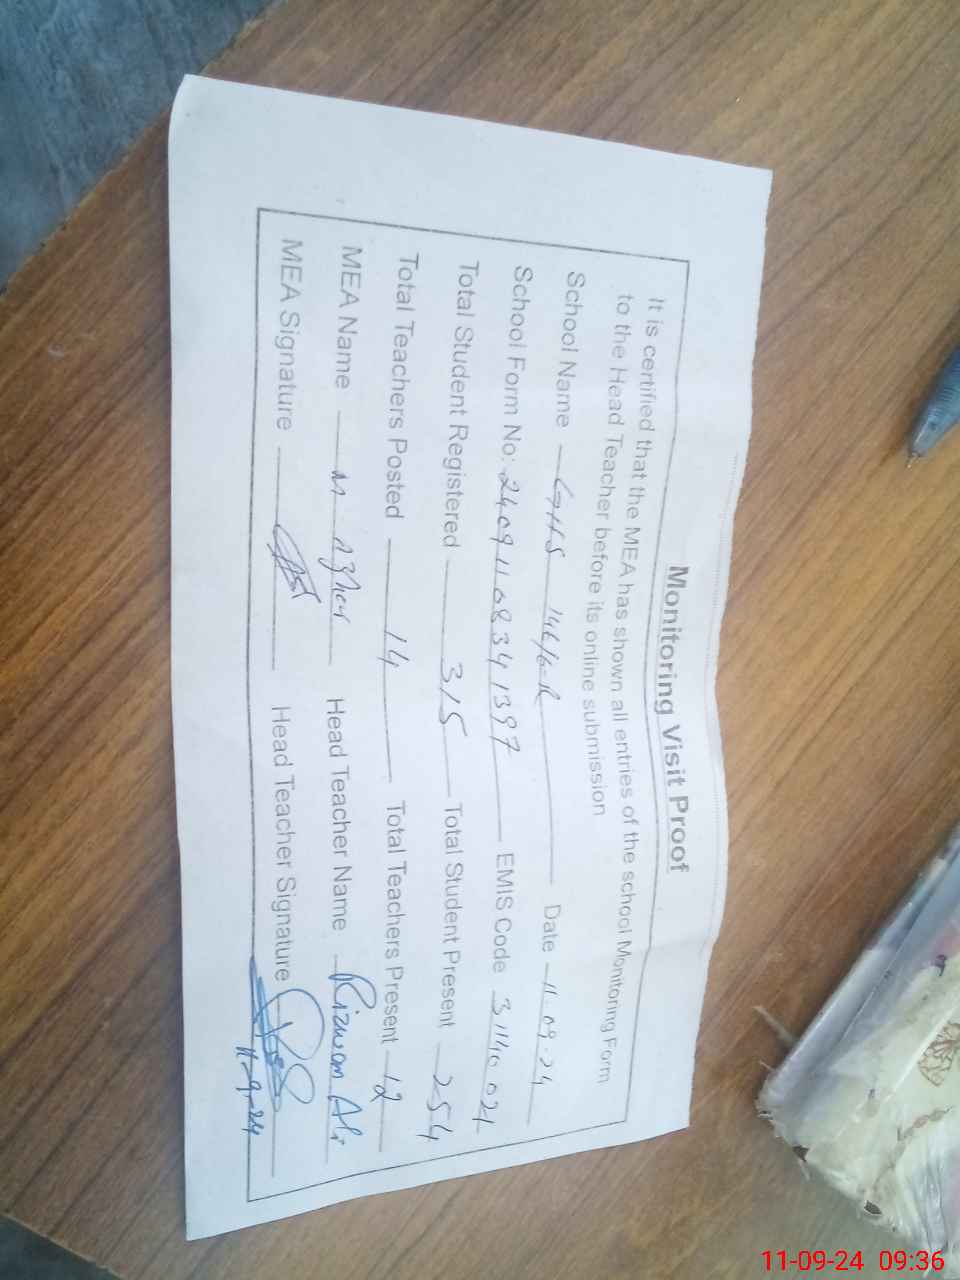 Monitoring Visit Proof
It is certified that the MEA has shown all entries of the school Monitoring Form
to the Head Teacher before its online submission
School Name GHS 146/6-R Date 11-09-24
School Form No: 24091108341397 EMIS Code 31140021
Total Student Registered 315 Total Student Present 254
Total Teachers Posted 14 Total Teachers Present 12
MEA Name M Azher Head Teacher Name Rizwan Ali
MEA Signature Head Teacher Signature
11-9-24
11-09-24 09:36